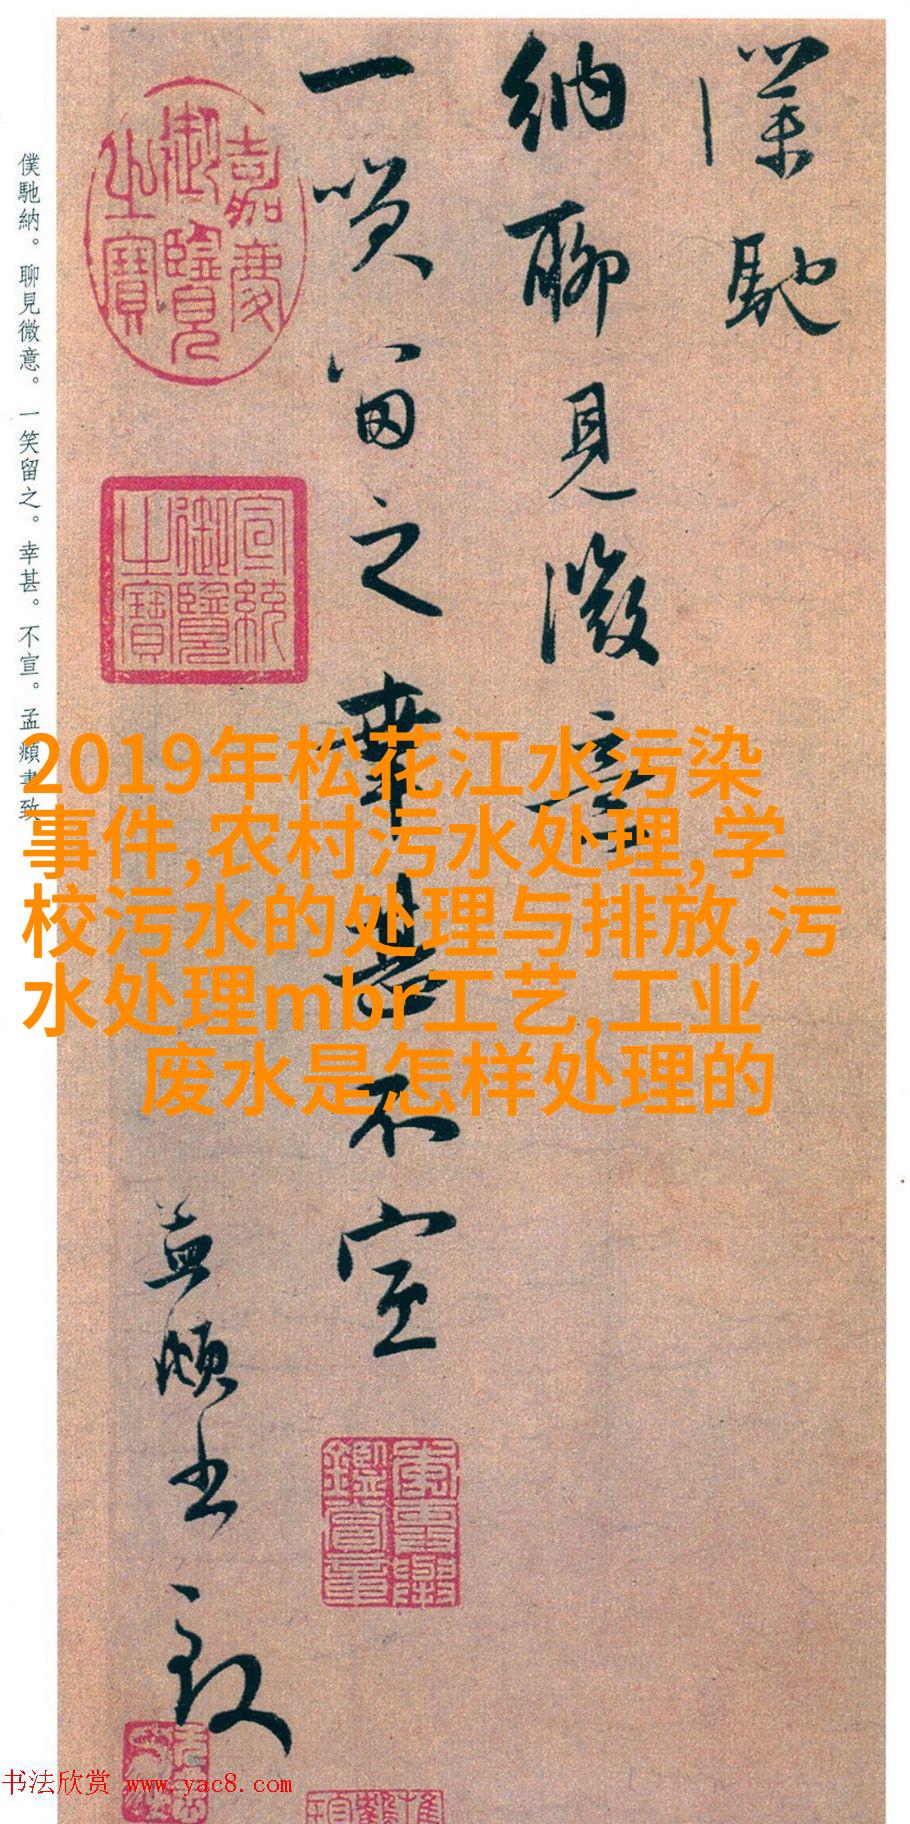 僕馳
納聊見微意
一笑留之幸甚不宣
孟頫書致
嘉慶御覽之寶
宣統御覽之寶
僕馳納。聊見微意。一笑留之。幸甚。不宣。孟頫書致
2019年松花江水污染
事件,农村污水处理,学
校污水的处理与排放,污
水处理mbr工艺,工业
废水是怎样处理的
书法欣赏 www.yac8.com